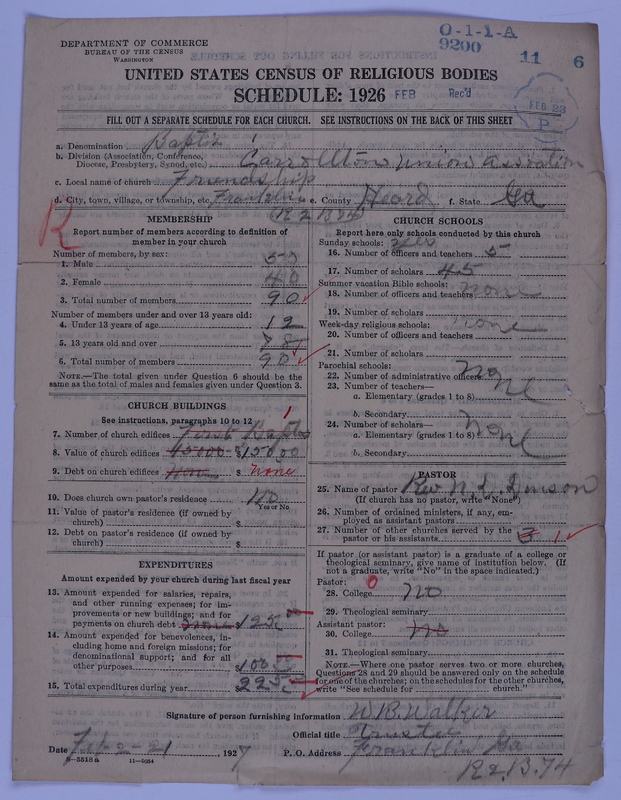 O-1-1-A
9200
11 6
DEPARTMENT OF COMMERCE
BUREAU OF THE CENSUS
WASHINGTON
UNITED STATES CENSUS OF RELIGIOUS BODIES
SCHEDULE: 1926 FEB Rec'd
FEB 23
P
FILL OUT A SEPARATE SCHEDULE FOR EACH CHURCH. SEE INSTRUCTIONS ON THE BACK OF THIS SHEET
a. Denomination Baptis
b. Division (Association, Conference, Diocese, Presbytery, Synod, etc.) Carrollton union
c. Local name of church Friendship
d. City, town, village, or township, etc. Franklin e. County Heard f. State Ga
R 2 B 74
R
MEMBERSHIP
Report number of members according to definition of member in your church
Number of members, by sex:
1. Male
2. Female 40
3. Total number of members 90
Number of members under and over 13 years old:
4. Under 13 years of age 12
5. 13 years old and over 78
6. Total number of members 90
NOTE.—The total given under Question 6 should be the same as the total of males and females given under Question 3.
CHURCH BUILDINGS
See instructions, paragraphs 10 to 12
7. Number of church edifices 1
8. Value of church edifices $1500
9. Debt on church edifices $ none
10. Does church own pastor's residence no
Yes or No
11. Value of pastor's residence (if owned by church) $
12. Debt on pastor's residence (if owned by church) $
EXPENDITURES
Amount expended by your church during last fiscal year
13. Amount expended for salaries, repairs, and other running expenses; for improvements or new buildings; and for payments on church debt $125
14. Amount expended for benevolences, including home and foreign missions; for denominational support; and for all other purposes $100
15. Total expenditures during year $225
CHURCH SCHOOLS
Report here only schools conducted by this church
Sunday schools: yes
16. Number of officers and teachers 5
17. Number of scholars 45
Summer vacation Bible schools:
18. Number of officers and teachers none
19. Number of scholars
Week-day religious schools: none
20. Number of officers and teachers
21. Number of scholars
Parochial schools:
22. Number of administrative officers none
23. Number of teachers—
a. Elementary (grades 1 to 8)
b. Secondary
24. Number of scholars— none
a. Elementary (grades 1 to 8)
b. Secondary
PASTOR
25. Name of pastor Rev
(If church has no pastor, write "None")
26. Number of ordained ministers, if any, employed as assistant pastors
27. Number of other churches served by the pastor or his assistants 3 1
If pastor (or assistant pastor) is a graduate of a college or theological seminary, give name of institution below. (If not a graduate, write "No" in the space indicated.)
Pastor: 0
28. College No
29. Theological seminary
Assistant pastor:
30. College no
31. Theological seminary
NOTE.—Where one pastor serves two or more churches, Questions 28 and 29 should be answered only on the schedule for one of the churches; on the schedules for the other churches, write "See schedule for church."
Signature of person furnishing information W B. Walker
Official title Trustee
Date Feb 2-21 1927 P. O. Address Franklin Ga
S-5518a 11-5034
R2, B. 74